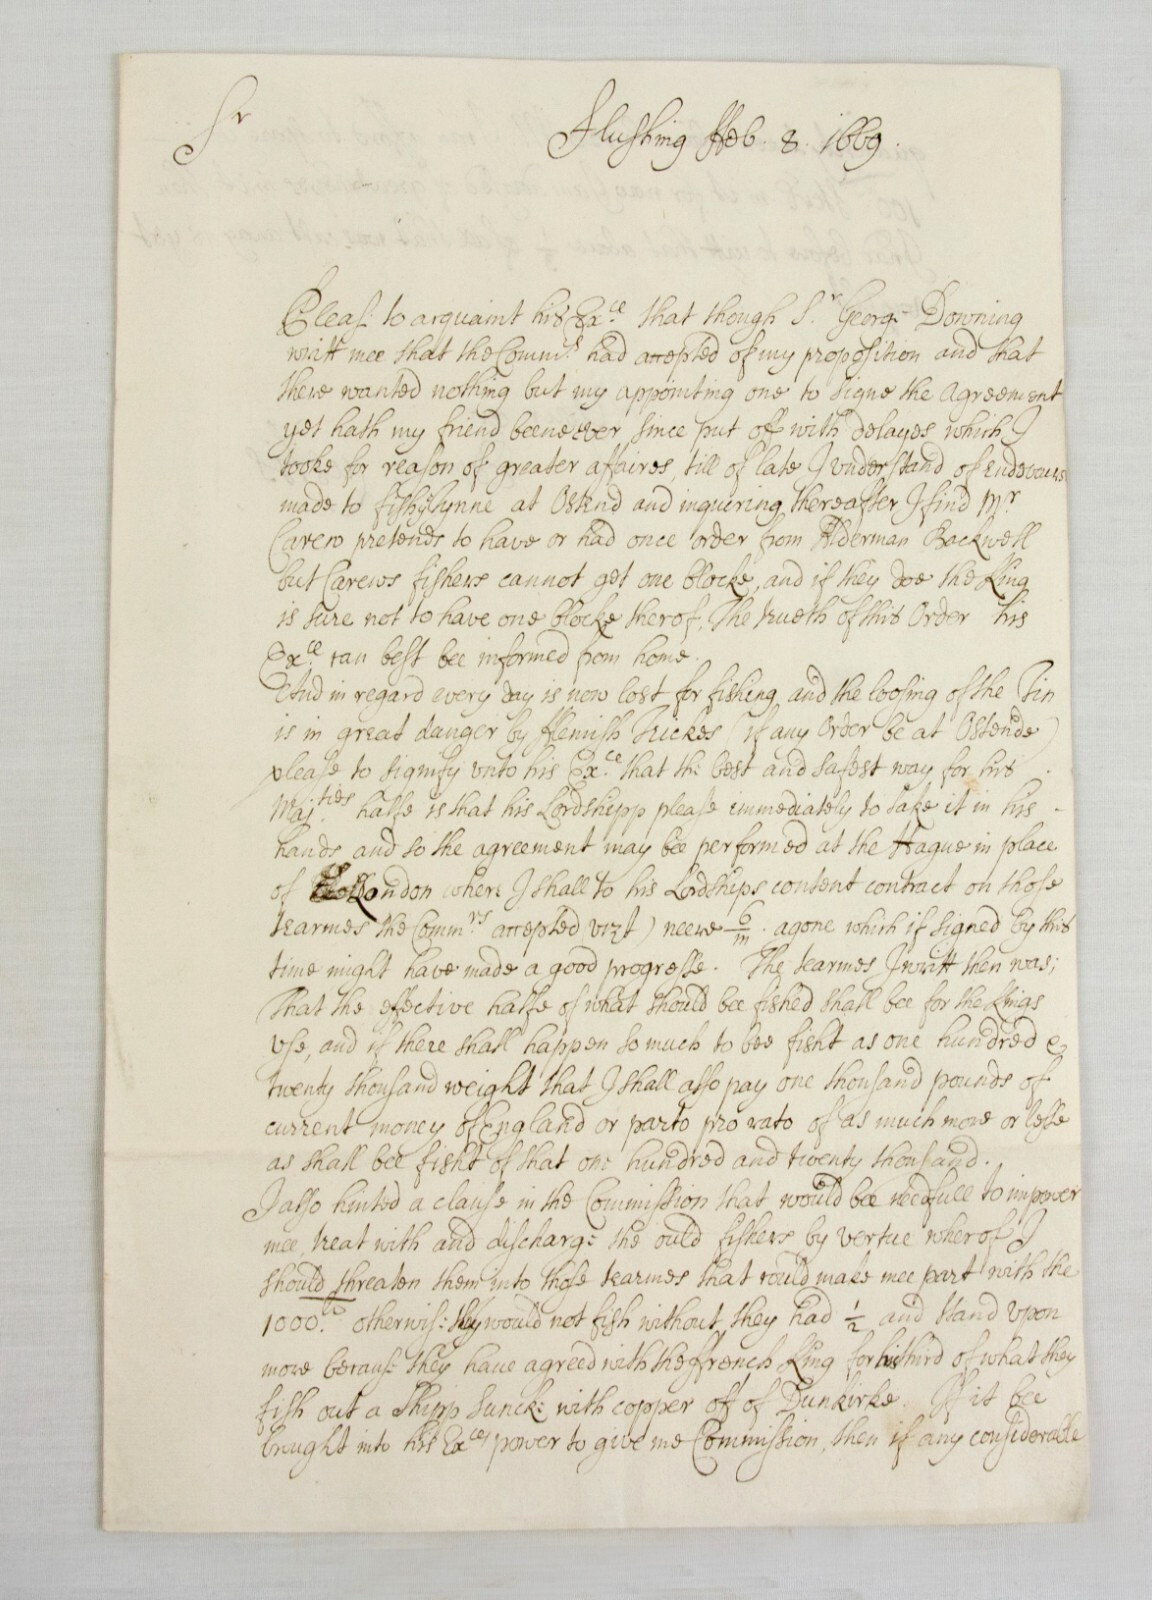 Sr
Flushing ffeb. 8. 1669.
Pleas: to acquaint his Exce. that though Sr. Georg Downing
writt mee that the Comms had accepted of my proposition and that
there wanted nothing but my appointing one to signe the Agreement
yet hath my friend beene ever since put off with delayes which I
tooke for reason of greater affaires, till of late I understand of endevours
made to fish ye tynne at Ostend and inquiring thereafter I find Mr.
Carew pretends to have or had once order from Alderman Backwell
but Carews fishers cannot get one blocke, and if they doe the King
is sure not to have one blocke therof. The trueth of this Order his
Exce. can best bee informed from home.
And in regard every day is now lost for fishing and the loosing of the Tin
is in great danger by fflemish Trickes (if any Order be at Ostende)
please to signify unto his Exce. that the best and safest way for his
Maj:ties halfe is that his Lordshipp please immediately to take it in his
hands and so the agreement may bee performed at the Hague in place
of London where I shall to his Lordships content contract on those
tearmes the Commrs. accepted vizt) neere 6/m. agone which if signed by this
time might have made a good progresse. The tearmes I writt then was;
That the effective halfe of what should bee fished shall bee for the Kings
Use, and if there shall happen so much to bee fisht as one hundred &
twenty thousand weight that I shall also pay one thousand pounds of
current money of England or parto pro rato of as much more or lesse
as shall bee fisht of that one hundred and twenty thousand.
I also hinted a clause in the Commission that would bee needfull to impower
mee, treat with and discharge the ould fishers by vertue wherof I
should threaten them into those tearmes that could make mee part with the
1000.lb otherwis: they would not fish without they had ½ and stand upon
more becaus: they have agreed with the ffrench King for his third of what they
fish out a Shipp sunck: with copper off of Dunkirke. If it bee
brought into his Exces power to give me Commission, then if any considerable